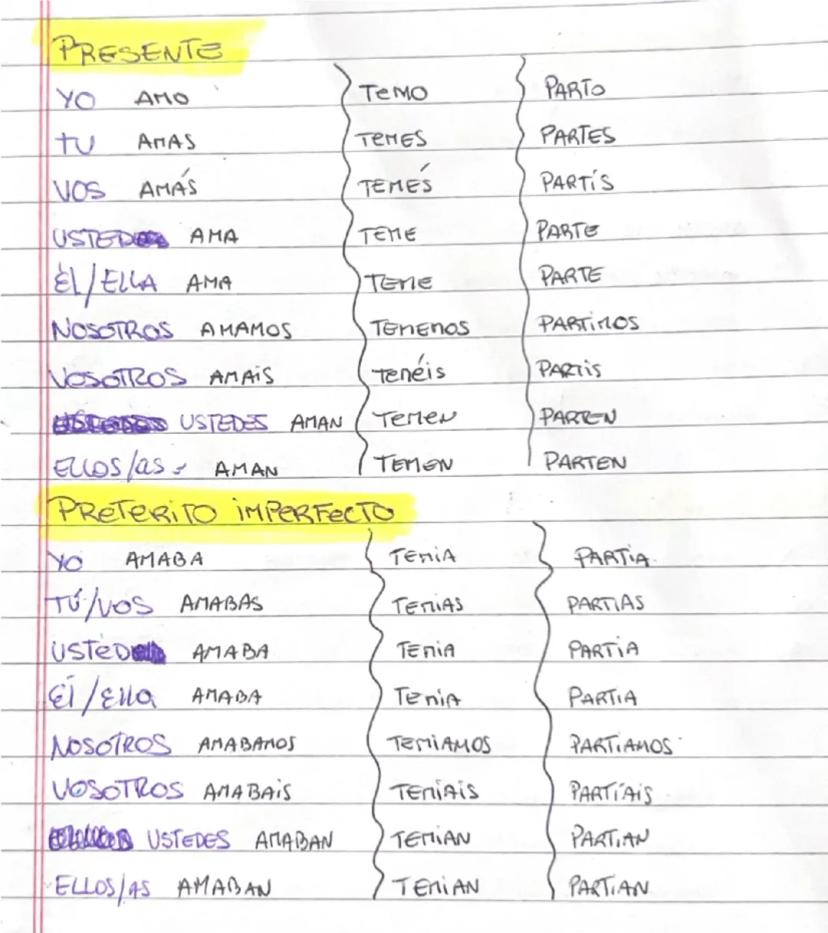 PRESENTE
YO AMO TEMO PARTO
TU AMAS TEMES PARTES
VOS AMÁS TEMÉS PARTÍS
USTED AMA TEME PARTE
ÉL/ELLA AMA TEME PARTE
NOSOTROS AMAMOS TEMEMOS PARTIMOS
VOSOTROS AMAIS TEMÉIS PARTIS
USTEDES AMAN TEMEN PARTEN
ELLOS/AS - AMAN TEMEN PARTEN
PRETERITO IMPERFECTO
YO AMABA TEMIA PARTIA
TÚ/VOS AMABAS TEMIAS PARTIAS
USTED AMABA TEMIA PARTIA
ÉL/Ella AMABA TEMIA PARTIA
NOSOTROS AMABAMOS TEMIAMOS PARTIAMOS
VOSOTROS AMABAIS TEMIAIS PARTÍAIS
USTEDES AMABAN TEMIAN PARTIAN
ELLOS/AS AMABAN TEMIAN PARTIAN